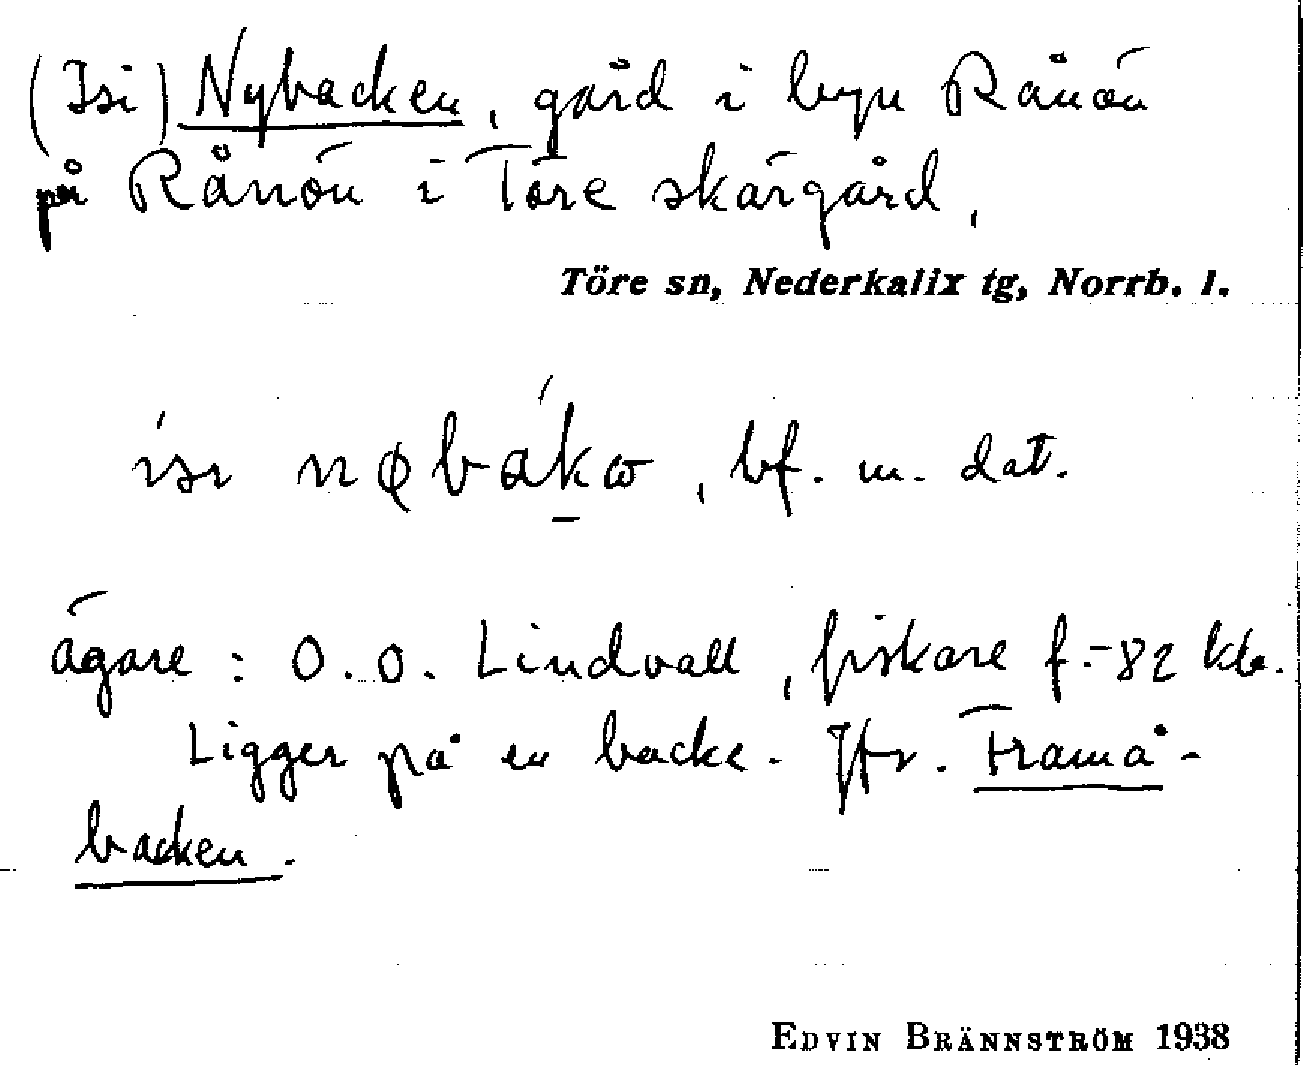 (Isi) Nybacken, gård i byn Rånön
på Rånön i Töre skärgård.
Töre sn, Nederkalix tg, Norrb. l.
isı nøbákω, bf. m. dat.
ägare: O. O. Lindvall, fiskare f. -82
Ligger på en backe. Jfr. Framå-
backen.
EDVIN BRÄNNSTRÖM 1938